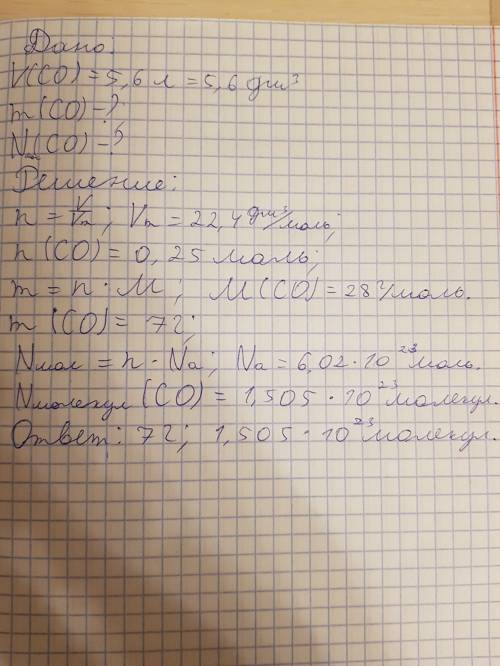 Дано:
V(CO) = 5,6 л = 5,6 дм³
m(CO) - ?
N(CO) - ?
Решение:
n = V/Vₙ; Vₙ = 22,4 дм³/моль;
n(CO) = 0,25 моль;
m = n · M; M(CO) = 28 г/моль.
m(CO) = 7г;
Nмол = n · Na; Na = 6,02 · 10²³ моль.
Nмолекул(CO) = 1,505 · 10²³ молекул.
Ответ: 7г; 1,505 · 10²³ молекул.